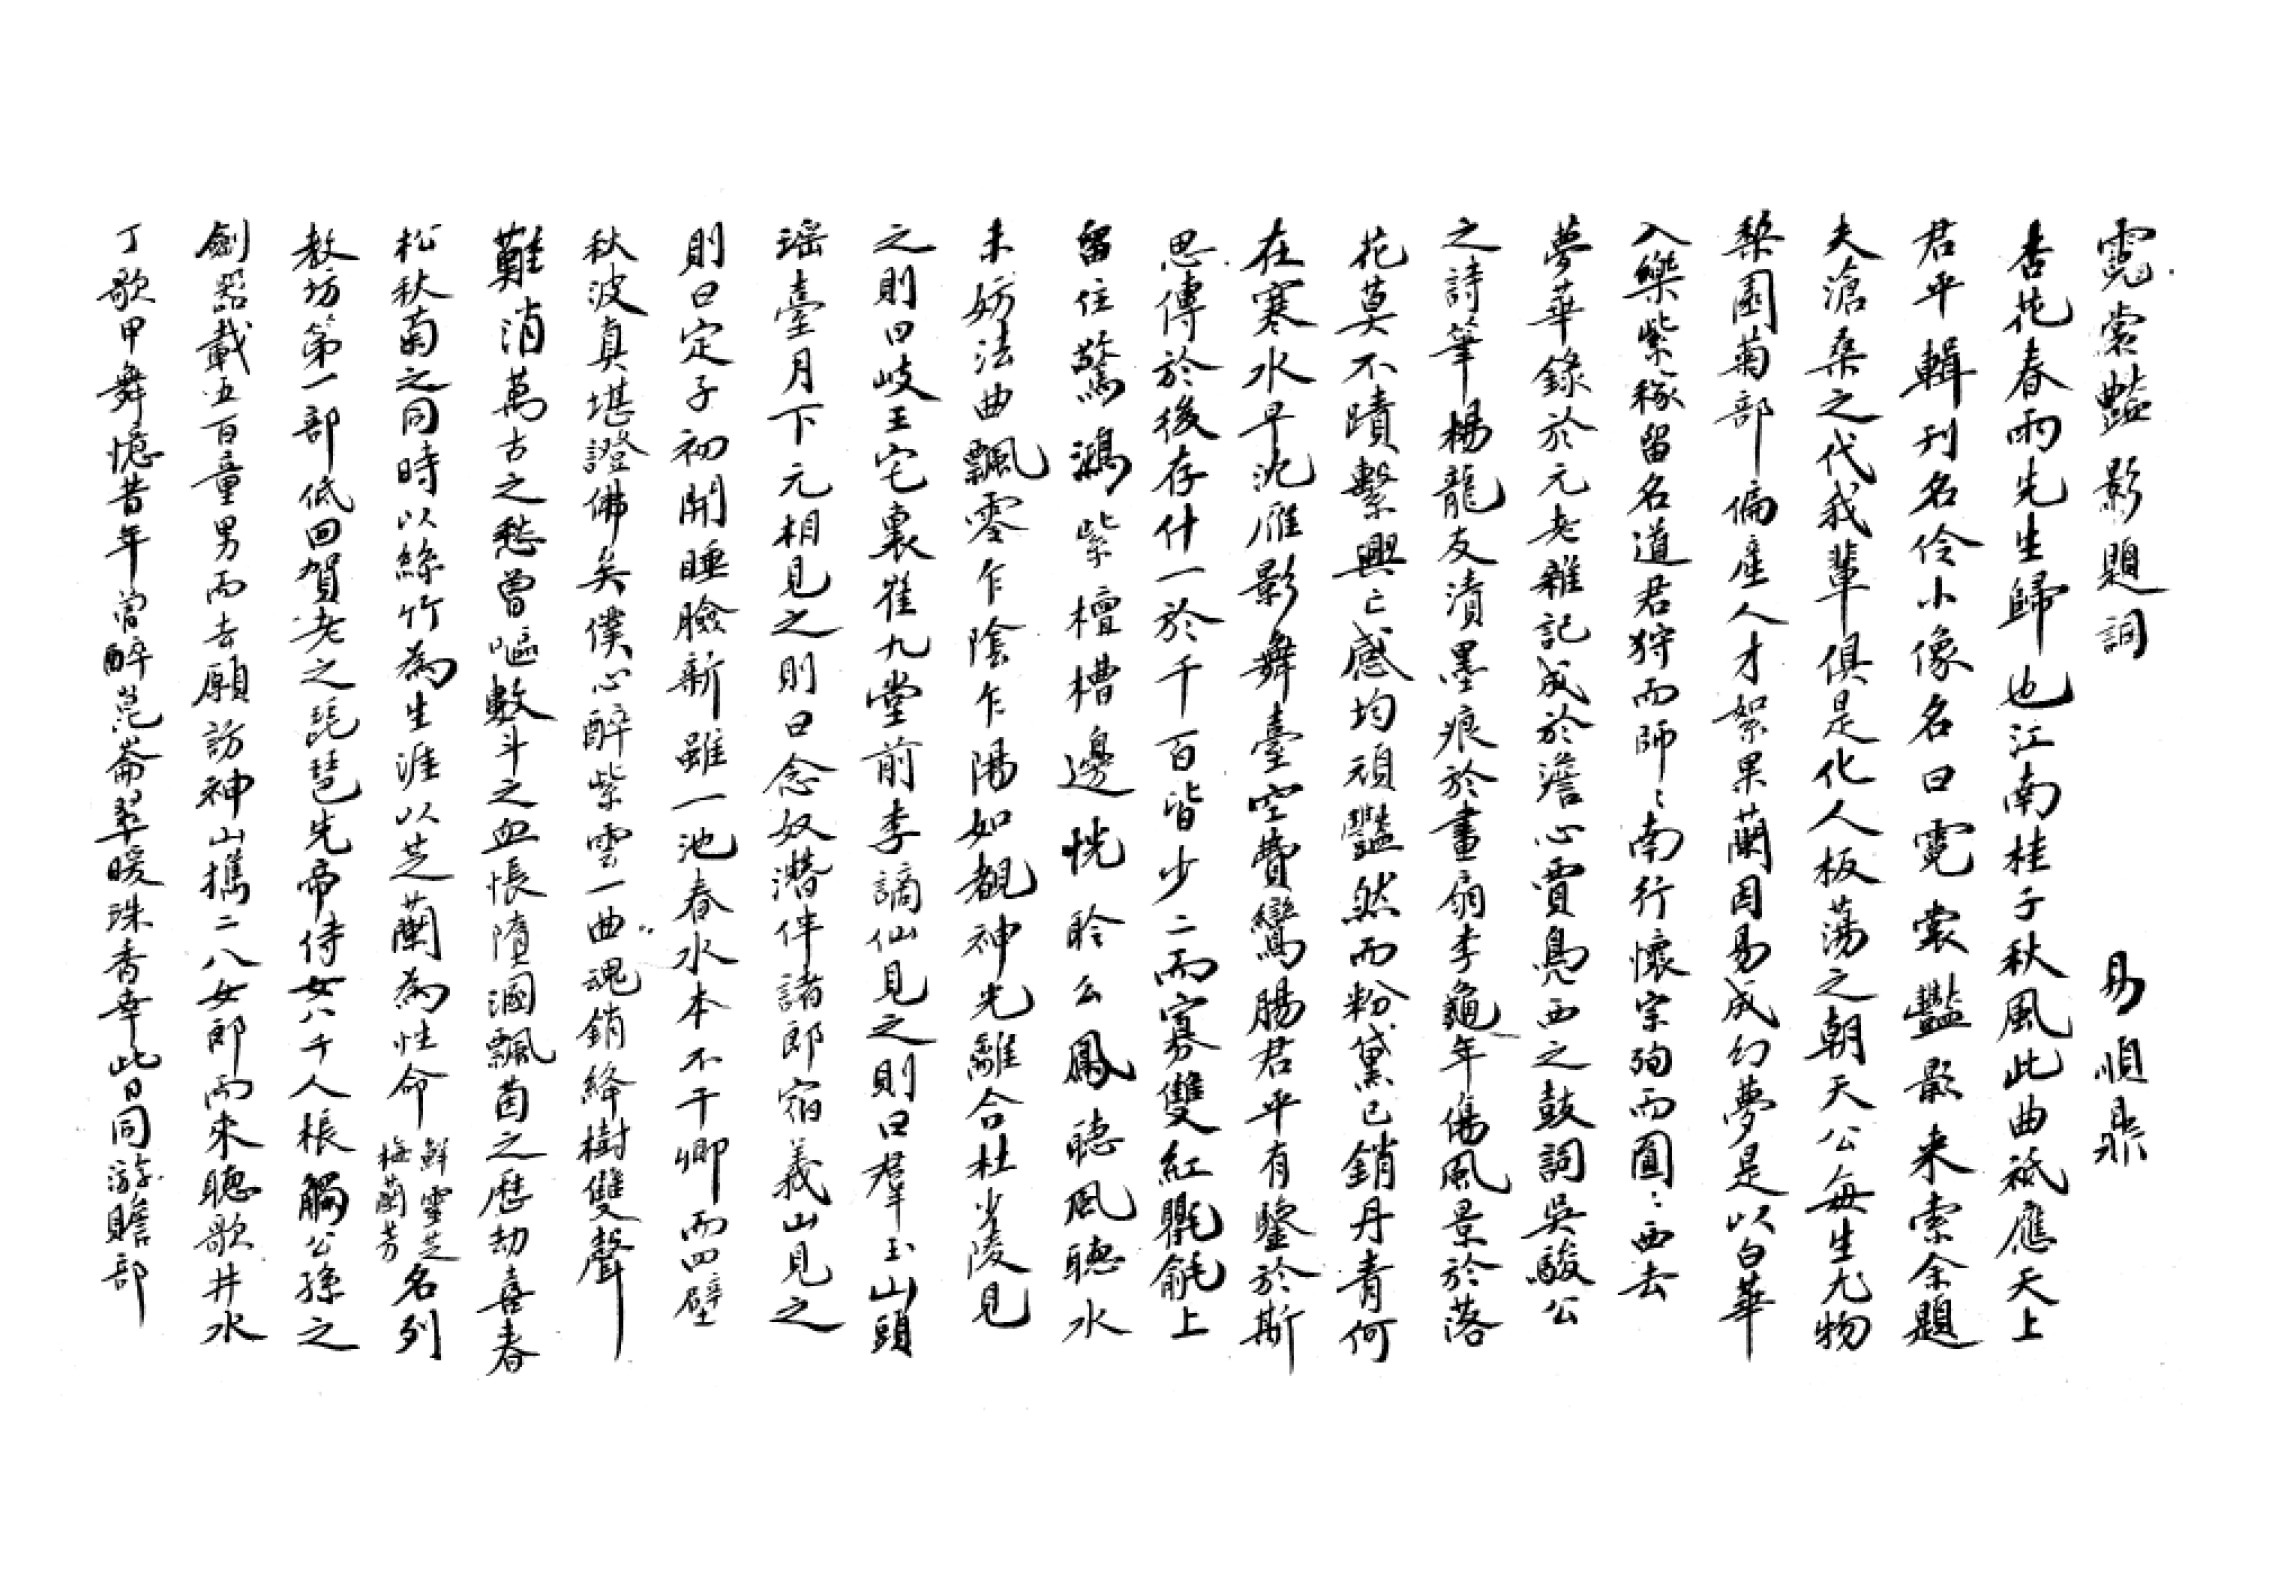 霓裳豔影題詞　易順鼎
杏花春雨先生歸也江南桂子秋風此曲祗應天上
君平輯刊名伶小像名曰霓裳豔影来索余題
夫滄桑之代我輩俱是化人板蕩之朝天公每生尤物
梨園菊部偏產人才絮果蘭因易成幻夢是以白華
入樂紫稼留名道君狩而師師南行懷宗殉而圓圓西去
夢華錄於元老雜記成於澹心賈鳧西之鼓詞吳駿公
之詩筆楊龍友漬墨痕於畫扇李龜年傷風景於落
花莫不蹟繫興亡感均頑豔然而粉黛已銷丹青何
在寒水早沈雁影舞臺空費鸞腸君平有鑒於斯
思傳於後存什一於千百皆少二而寡雙紅氍毹上
留住驚鴻紫檀槽邊恍聆么鳳聽風聽水
未妨法曲飄零乍陰乍陽如覩神光離合杜少陵見
之則曰岐王宅裏崔九堂前李謫仙見之則曰羣玉山頭
瑶臺月下元相見之則曰念奴潛伴諸郎宿義山見之
則曰定子初開睡臉新雖一池春水本不干卿而四壁
秋波真堪證佛矣僕心醉紫雲一曲魂銷絳樹雙聲
難消萬古之愁曾嘔數斗之血悵墮溷飄茵之歷劫喜春
松秋菊之同時以絲竹為生涯以芝蘭為性命鮮靈芝梅蘭芳名列
教坊第一部低回賀老之琵琶先帝侍女八千人棖觸公孫之
劍器載五百童男而去願訪神山攜二八女郎而來聽歌井水
丁歌甲舞憶昔年曾醉崑崙翠暖珠香幸此日同游贍部